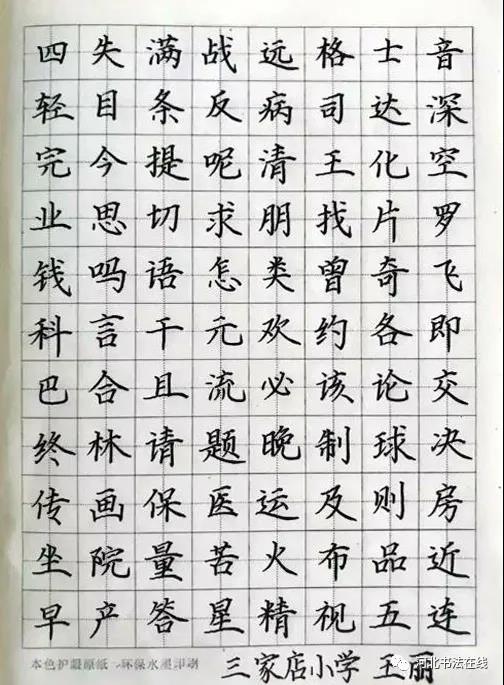 四失满战远格士音
轻目条反病司达深
完今提呢清王化空
业思切求朋找片罗
钱吗语怎类曾奇飞
科言干元欢约各即
巴合且流必该论交
终林请题晚制球决
传画保医运及则房
坐院量苦火布品近
早产答星精视五连
本色护眼原纸 环保水墨印刷
三家店小学 王丽
河北书法在线